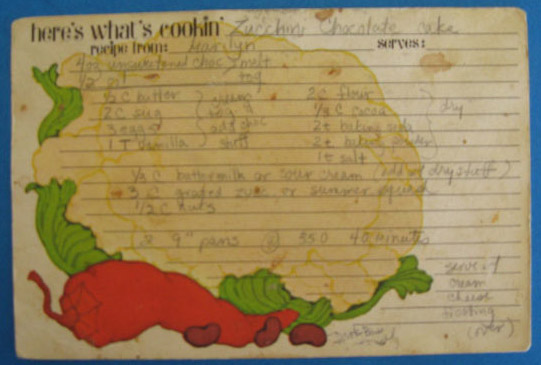 here's what's cookin' Zucchini Chocolate cake
recipe from: Marilyn serves:
4oz unsweetened choc melt
1/2 oil tog
1/2 C butter
2 C sug
3 eggs add choc
1 T vanilla stuff
2 C flour
1/3 C cocoa dry
2t baking soda
2t baking powder
1t salt
1/3 C buttermilk or sour cream (add w/ dry stuff)
3 C grated zucc or summer squash
1/2 C nuts
2 9" pans @ 350 40 minutes
serve w/
cream
cheese
frosting
(over)